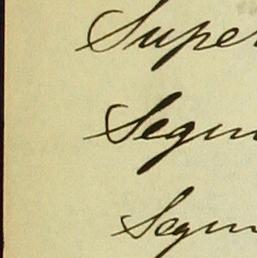 Super
Segun
Segun